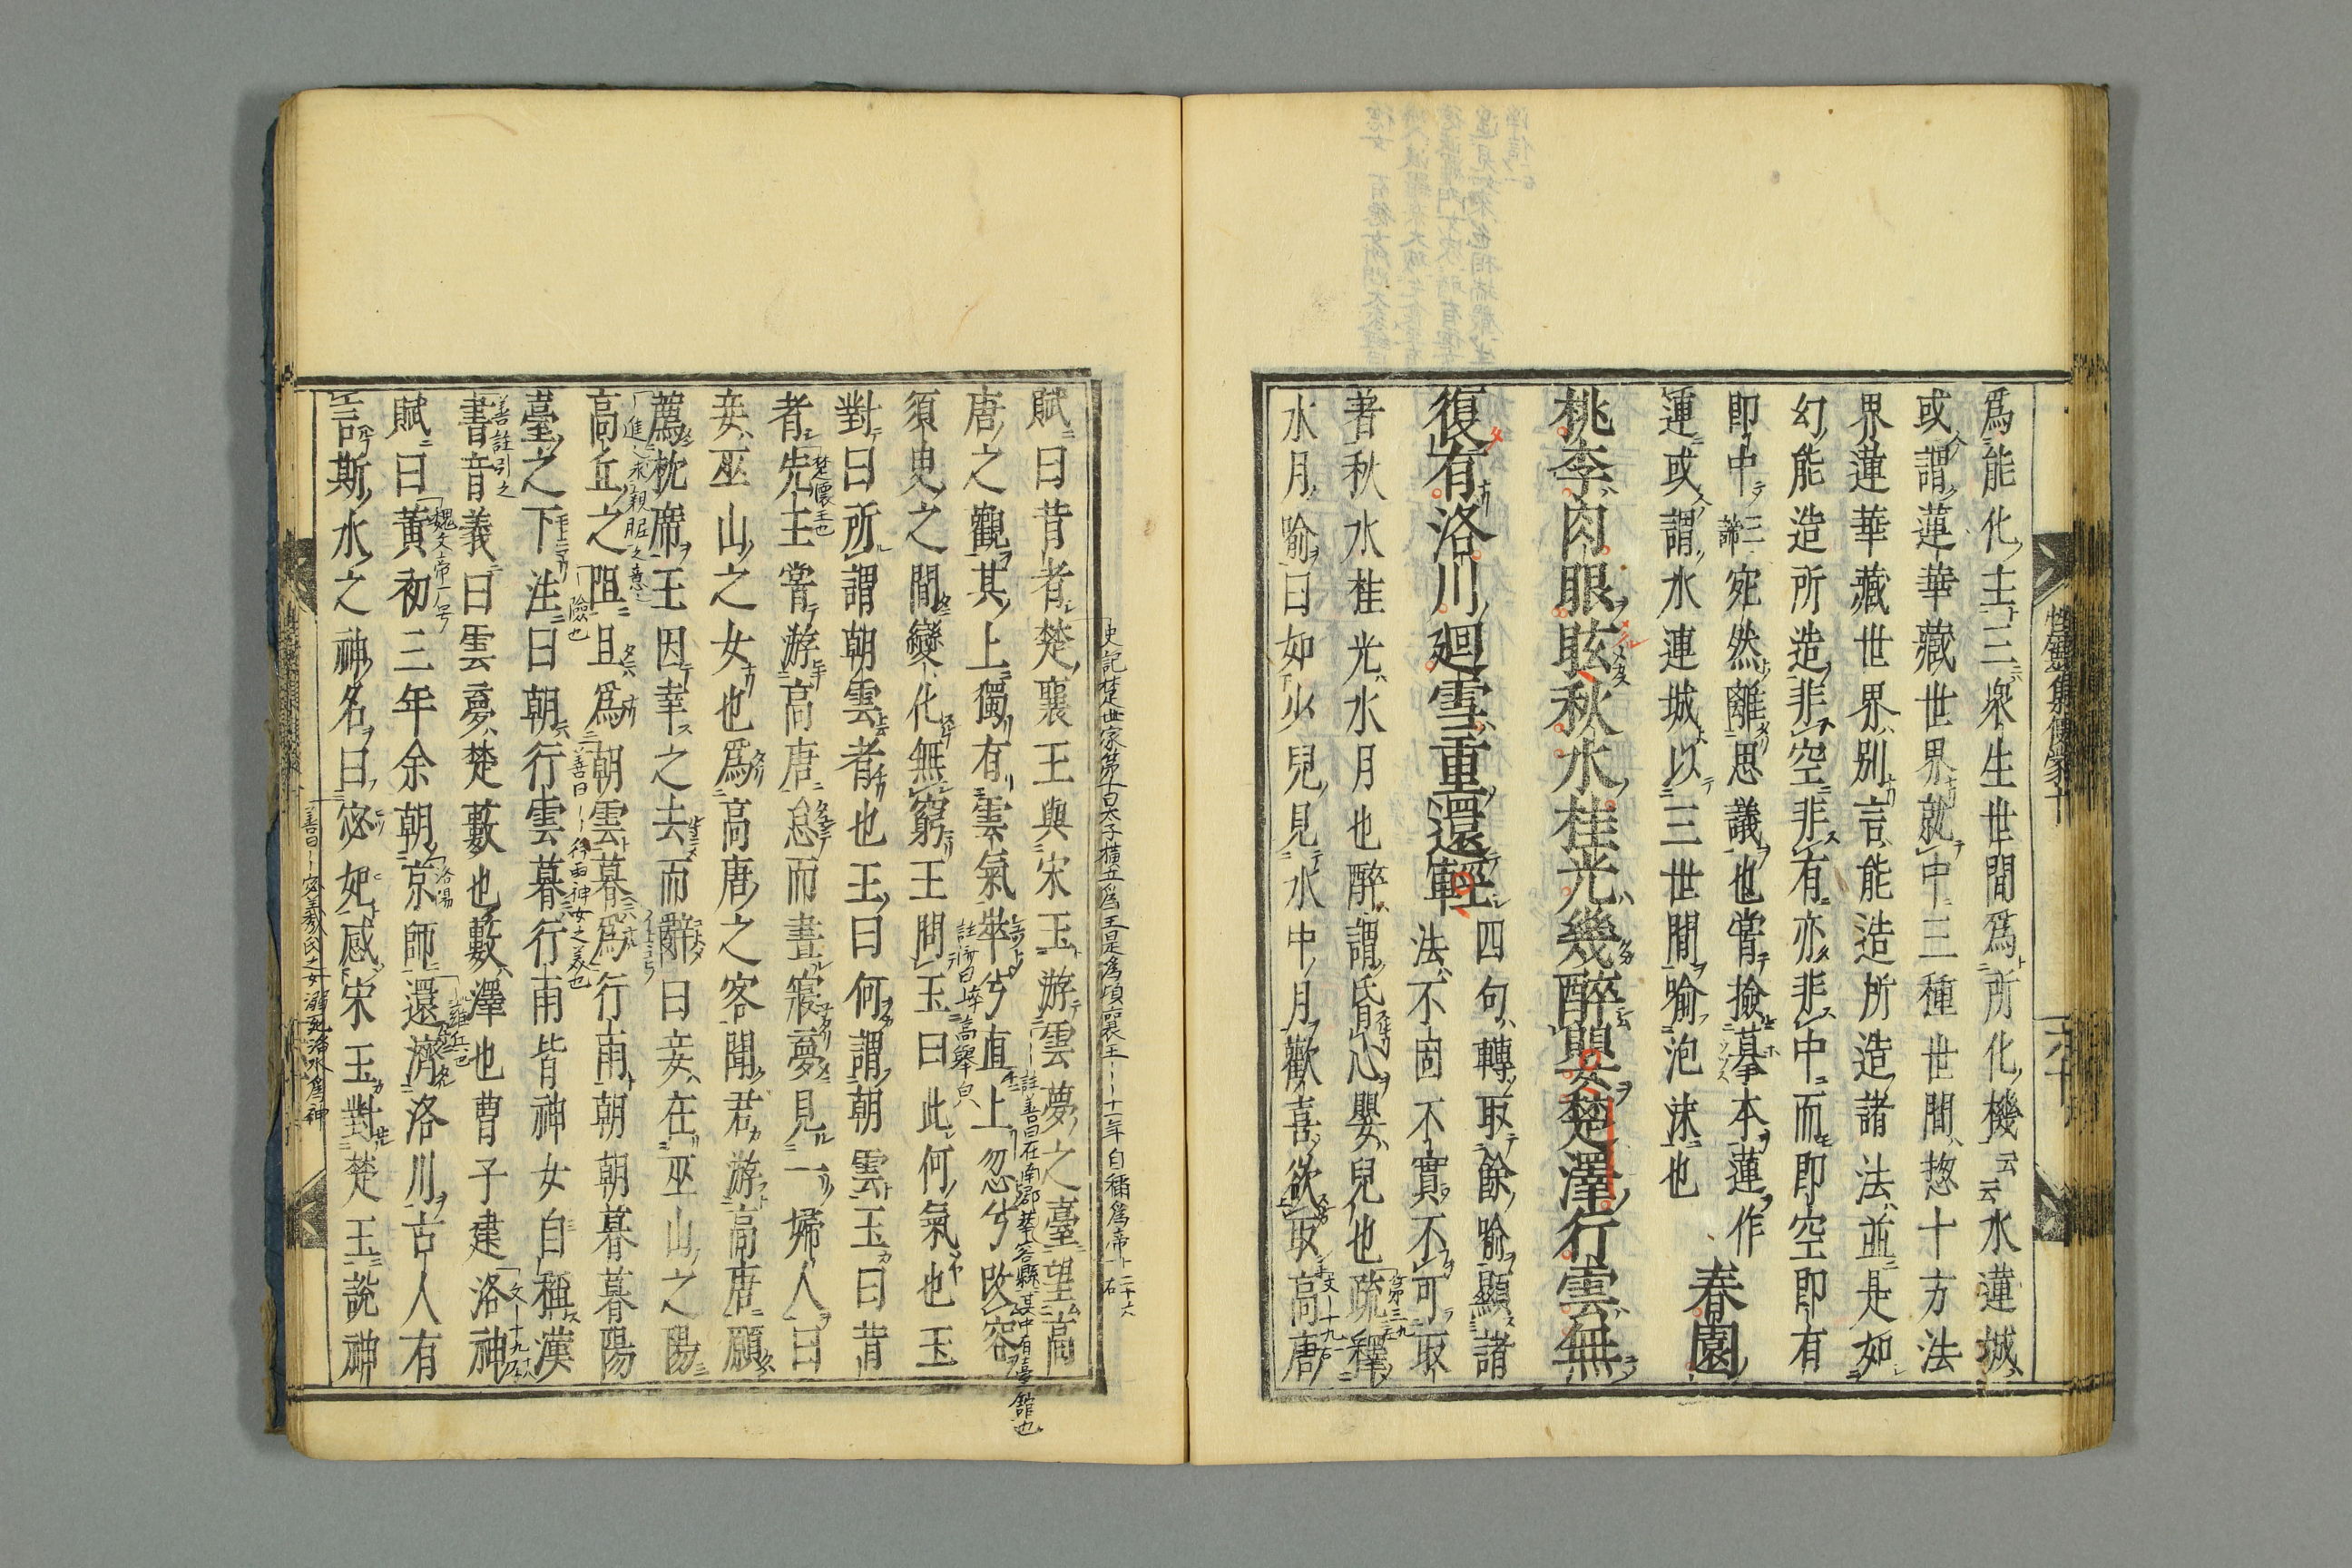 爲能化主三衆生世間爲所化機云云水蓮城
或謂蓮華藏世界就中三種世間惣十方法
界蓮華藏世界別言能造所造諸法並是如
幻能造所造非空非有亦非中而即空即有
即中三諦宛然離思議也甞撿摹本蓮作
運或謂水連城以三世間喻泡沫也
春園
桃李肉眼眩秋水桂光幾醉嬰楚澤行雲無
復有洛川廻雪重還輕
四句轉取餘喻顯諸
法不固不實不可取
著秋水桂光水月也醉謂昏心嬰兒也疏釋
水月喻曰如少兒見水中月歡喜欲取高唐
性靈集便蒙十
六十
賦曰昔者楚襄王與宋玉游雲夢之臺望高
唐之觀其上獨有雲氣崒兮直上忽兮改容
須臾之間變化無窮王問玉曰此何氣也玉
對曰所謂朝雲者也王曰何謂朝雲玉曰昔
者先王甞游高唐怠而晝寢夢見一婦人曰
妾巫山之女也爲高唐之客聞君游高唐願
薦枕席王因幸之去而辭曰妾在巫山之陽
高丘之阻旦爲朝雲暮爲行雨朝朝暮暮陽
臺之下注曰朝行雲暮行雨皆神女自稱漢
書音義曰雲夢楚藪也藪澤也曹子建洛神
賦曰黃初三年余朝京師還濟洛川古人有
言斯水之神名曰宓妃感宋玉對楚王說神
楚懷王也
進
險也
善註引之
魏文帝
洛陽
善曰
宓羲氏之女溺死洛水爲神